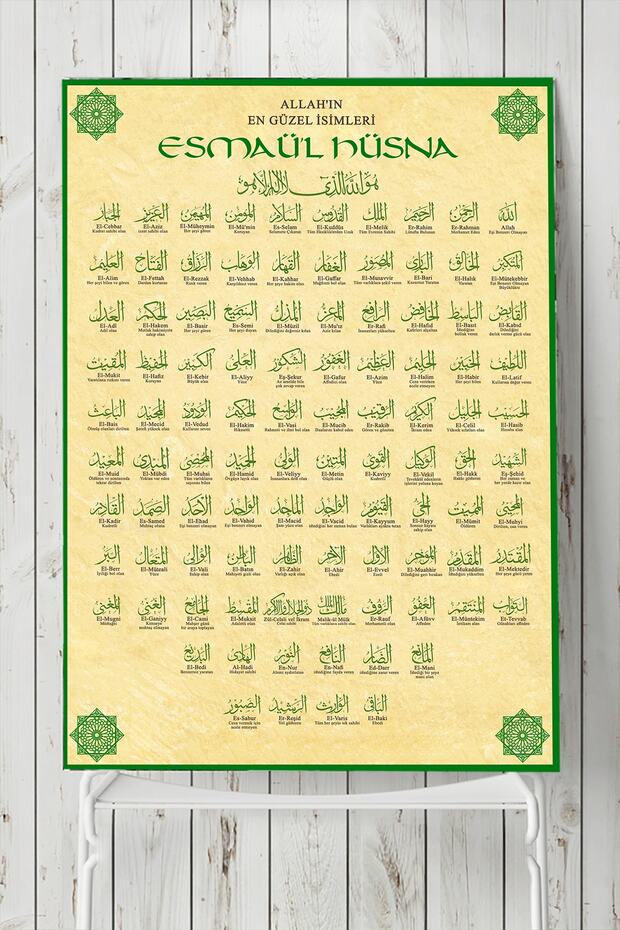 ALLAH'IN
EN GÜZEL İSİMLERİ
ESMAÜ'L HÜSNA
هو الله الذي لا اله الا هو
الله الرحمن الرحيم الملك القدوس السلام المؤمن المهيمن العزيز الجبار
El-Cebbar El-Aziz El-Müheymin El-Mü'min Es-Selam El-Kuddüs El-Melik Er-Rahim Er-Rahman Allah
Kudret sahibi olan İzzet sahibi olan Her şeyi gören Koruyan Selamete Çıkaran Tüm Eksikliklerden Uzak Tüm Evrenin Sahibi Lütufta Bulunan Merhamet Eden Eşi Benzeri Olmayan
المتكبر الخالق البارئ المصور الغفار القهار الوهاب الرزاق الفتاح العليم
El-Alim El-Fettah Er-Rezzak El-Vehhab El-Kahhar El-Gaffar El-Musavvir El-Bari El-Halık El-Mütekebbir
Her şeyi bilen Dardan kurtaran Rızık veren Karşılıksız veren Her şeye hakim olan Mağfireti bol olan Tüm varlıklara şekil veren Kusursuz Yaratan Yaratan Eşi Benzeri Olmayan
Büyüklükte
القابض الباسط الخافض الرافع المعز المذل السميع البصير الحكم العدل
El-Adl El-Hakem El-Basir Es-Semi El-Müzil El-Mu'ız Er-Rafi El-Hafid El-Basıt El-Kabıd
Adil olan Mutlak hakimiyete Her şeyi gören Her şeyi duyan Dilediğini değersiz kılan Aziz kılan İnsanları yükselten Kafirleri alçaltan
sahip olan
اللطيف الخبير الحليم العظيم الغفور الشكور العلي الكبير الحفيظ المقيت
El-Mukit El-Hafiz El-Kebir El-Aliyy Eş-Şekur El-Gafur El-Azim El-Halim El-Habir El-Latif
Yaratılana rızkını veren Koruyan Büyük olan Yüce Az amelde bile Affedici olan Yüce Ceza verirken Her şeyi bilen
çok sevap veren acele etmeyen
الحسيب الجليل الكريم الرقيب المجيب الواسع الحكيم الودود المجيد الباعث
El-Bais El-Mecid El-Vedud El-Hakim El-Vasi El-Mucib Er-Rakib El-Kerim El-Celil El-Hasib
Ölmüş olanları dirilten Şerefi yüksek olan Kullarını seven Hikmetli Rahmeti ve ilmi bol olan Dualarını kabul eden Gören ve gözeten İkram eden Yüksek sıfatları olan Hesaba çeken
الشهيد الحق الوكيل القوي المتين الولي الحميد المحصي المبدئ المعيد
El-Muid El-Mübdi El-Muhsi El-Hamid El-Veliyy El-Metin El-Kaviyy El-Vekil El-Hakk Eş-Şehid
Öldüren ve sonrasında Yoktan var eden Tüm varlıkların Övgüye layık olan İnsanlara delil olan Güçlü olan Kuvvetli Hakkı gösteren Her zaman ve
tekrar dirilten sayısını bilen her yerde hazır olan
المحيي المميت الحي القيوم الواجد الماجد الواحد الاحد الصمد القادر
El-Kadir Es-Samed El-Ehad El-Vahid El-Macid El-Vacid El-Kayyum El-Hayy El-Mümit El-Muhyi
Kudretli Muhtaç olunan Eşi benzeri olmayan Tek olan Şanı yüce olan Varlıkları ayakta tutan Sonsuz hayatın Öldüren Dirilten, can veren
sahibi olan
المقتدر المقدم المؤخر الاول الاخر الظاهر الباطن الوالي المتعال البر
El-Berr El-Müteali El-Vali El-Batın El-Zahir El-Ahir El-Evvel El-Muahhir El-Mukaddim El-Mektedir
İyiliği bol olan Yüce Sahip olan Mahiyeti gizli olan Varlığı açık olan Ebedi Ezeli Dilediğini geri bırakan Dilediğini yükselten Her şeye gücü yeten
التواب المنتقم العفو الرؤف مالك الملك ذو الجلال والاكرام المقسط الجامع الغني المغني
El-Mugni El-Ganiyy El-Cami El-Muksit Zül-Celali vel İkram Malik-ül Mülk Er-Rauf El-Afüvv El-Müntekim Et-Tevvab
Müstağni Kimseye Mahşer günü Adaletli olan Celal sahibi Tüm varlıkların sahibi olan Merhametli Affeden İntikamı alan Günahları affeden
muhtaç olmayan bir araya toplayan
المانع الضار النافع النور الهادي البديع
El-Bedi Al-Hadi En-Nur En-Nafi Ed-Darr El-Mani
Benzersiz yaratan Hidayet sahibi Alemi aydınlatan
الباقي الوارث الرشيد الصبور
Es-Sabur Er-Reşid El-Varis El-Baki
Ceza vermek için Yol gösteren Tüm her şeyin tek sahibi Ebedi
acele etmeyen